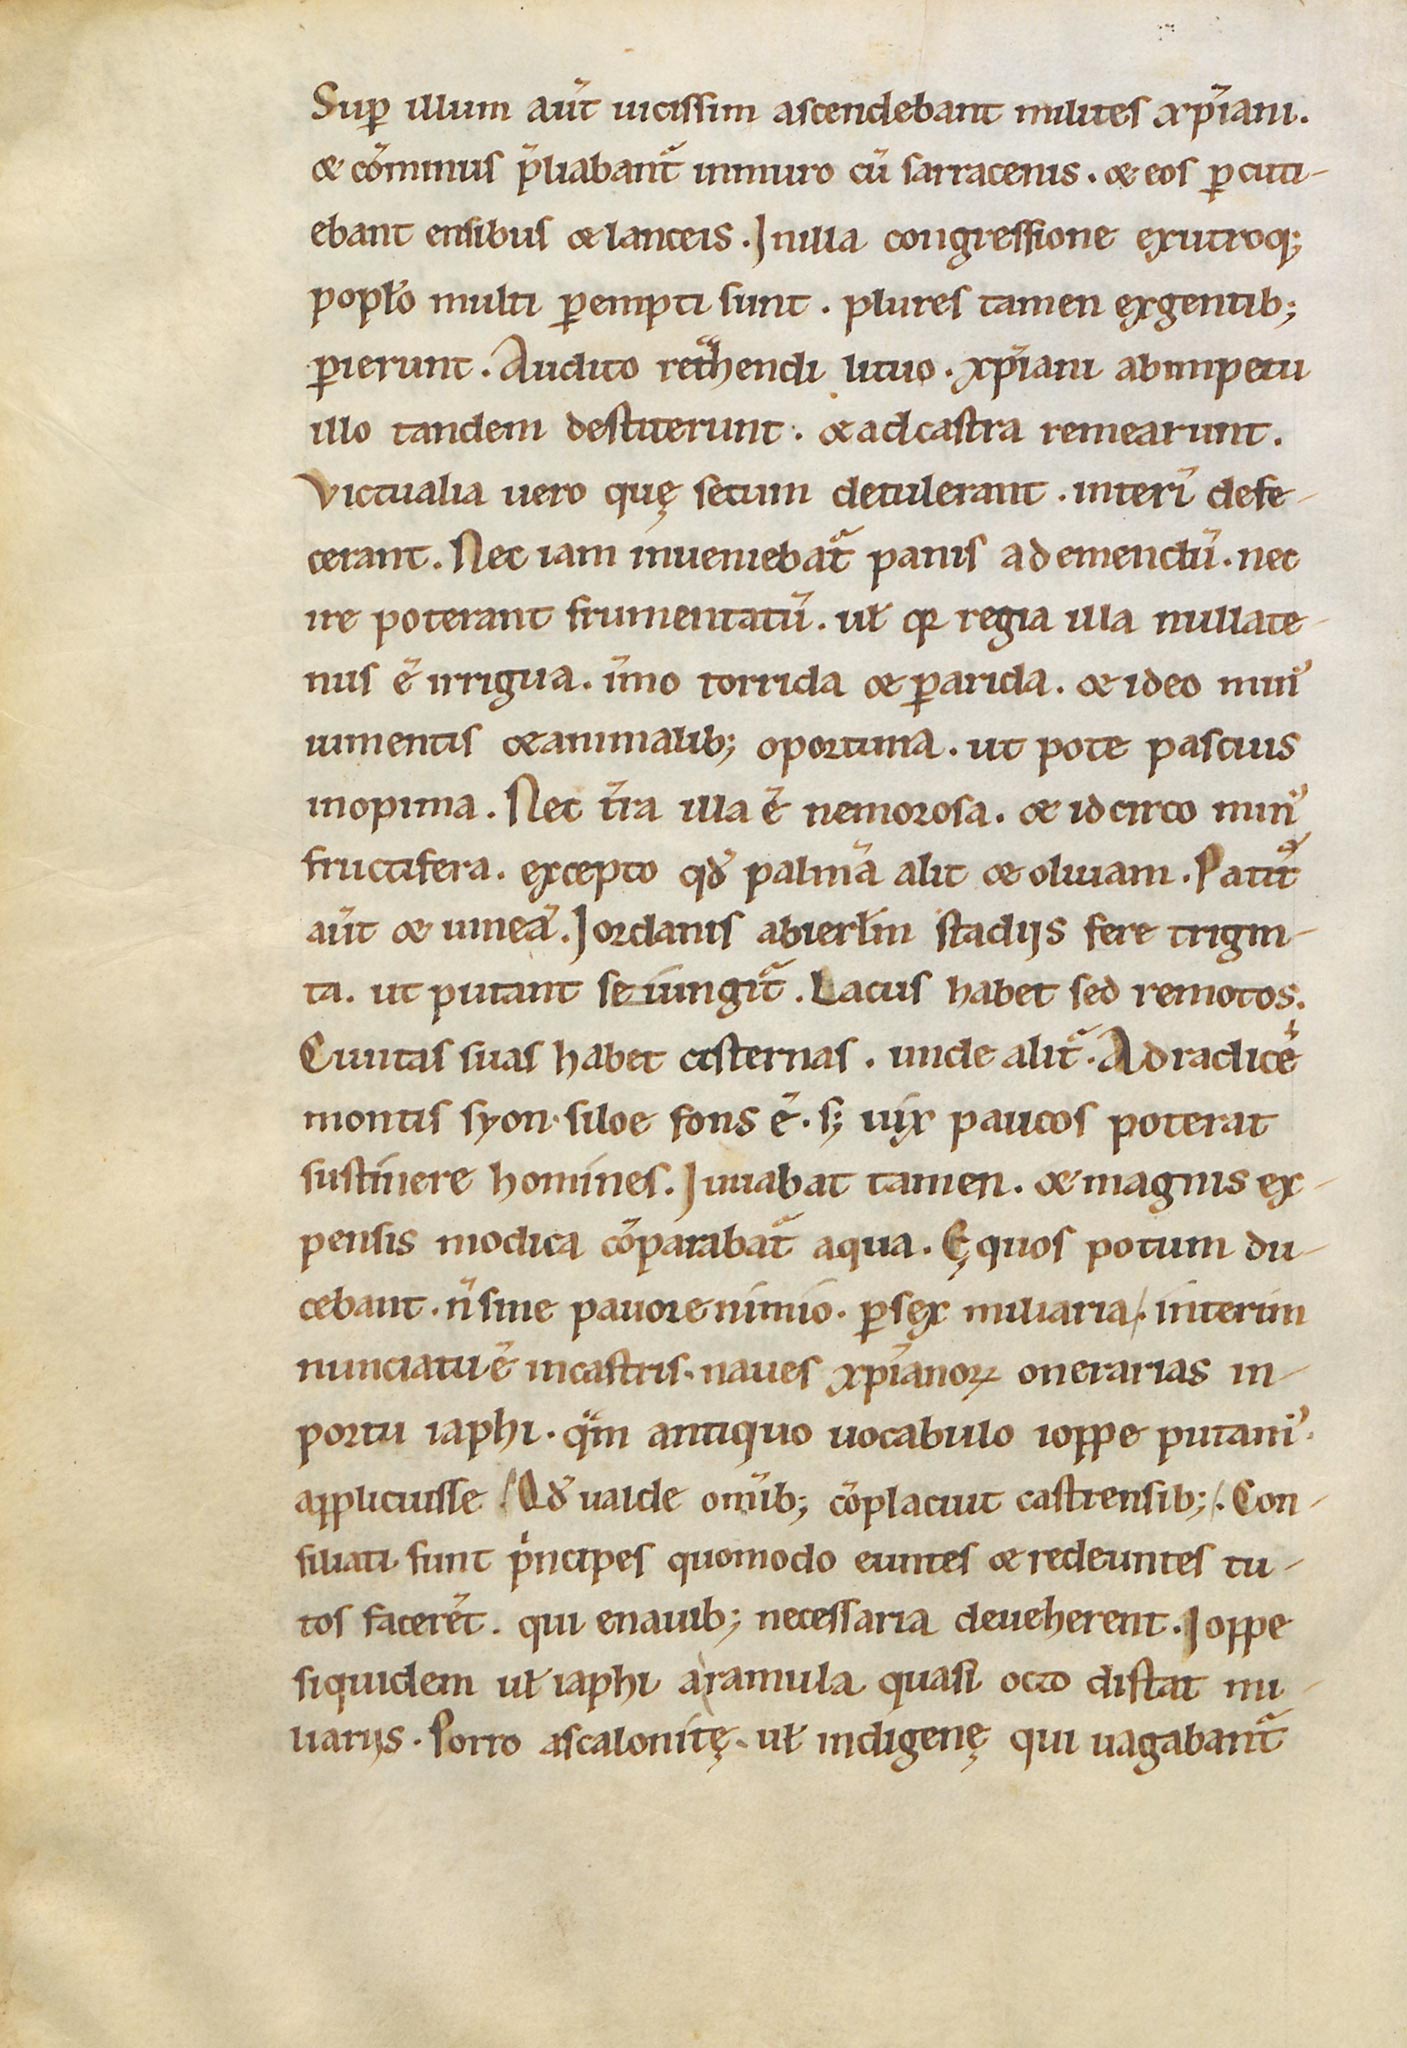 Sup̱ illum aūt uicissim ascendebant milites xp̄iani.
& cōminus p̄liabant᷑ inmuro cū sarracenis. & eos p̱cuti-
ebant ensibus & lanceis. Inilla congressione exutroq;
popłο multi p̱empti sunt. plures tamen exgentib;
p̱ierunt. Audito retͣhendi lituo. xp̄iani abimpetu
illo tandem destiterunt. & adcastra remearunt.
Victualia uero quę secum detulerant. interī defe-
cerant. Nec iam inueniebat᷑ panis ad emendū. nec
ire poterant frumentatū. uł qꝛ regia illa nullate-
nus ē irrigua. īmo torrida & p̱arida. & ideo min᾽
iumentis & animalib; oportuna. ut pote pascuis
inopima. Nec t̄ra illa ē nemorosa. & idcirco min᾽
fructifera. excepto qđ palmā alit & oliuam. Patit᷑
aūt & uineā. Iordanis abierłm stadijs fere trigin-
ta. ut putant seiungit᷑. Lacus habet sed remotos.
Ciuitas suas habet cisternas. unde alit᷑. Ad radicē
montis syon. siloe fons ē. s; uix paucos poterat
sustinere homines. Iuuabat tamen. & magnis ex-
pensis modica cōparabat᷑ aqua. Ęquos potum du-
cebant. n̄ sine pauore nimio. p̱ sex miliaria. interim
nunciatū ē incastris. naues xp̄ianoꝝ onerarias in-
portu iaphi. qͣm antiquo uocabulo ioppe putam᾽.
applicuisse. Qđ ualde om̄ib; cōplacuit castrensib;. Con-
siliati sunt pͥncipes quomodo euntes & redeuntes tu-
tos facerēt. qui enauib; necessaria deueherent. Ioppe
siquidem uł iaphi a ramula quasi octo distat mi-
liarijs. Porro ascalonitę. uł indigenę qui uagabant᷑